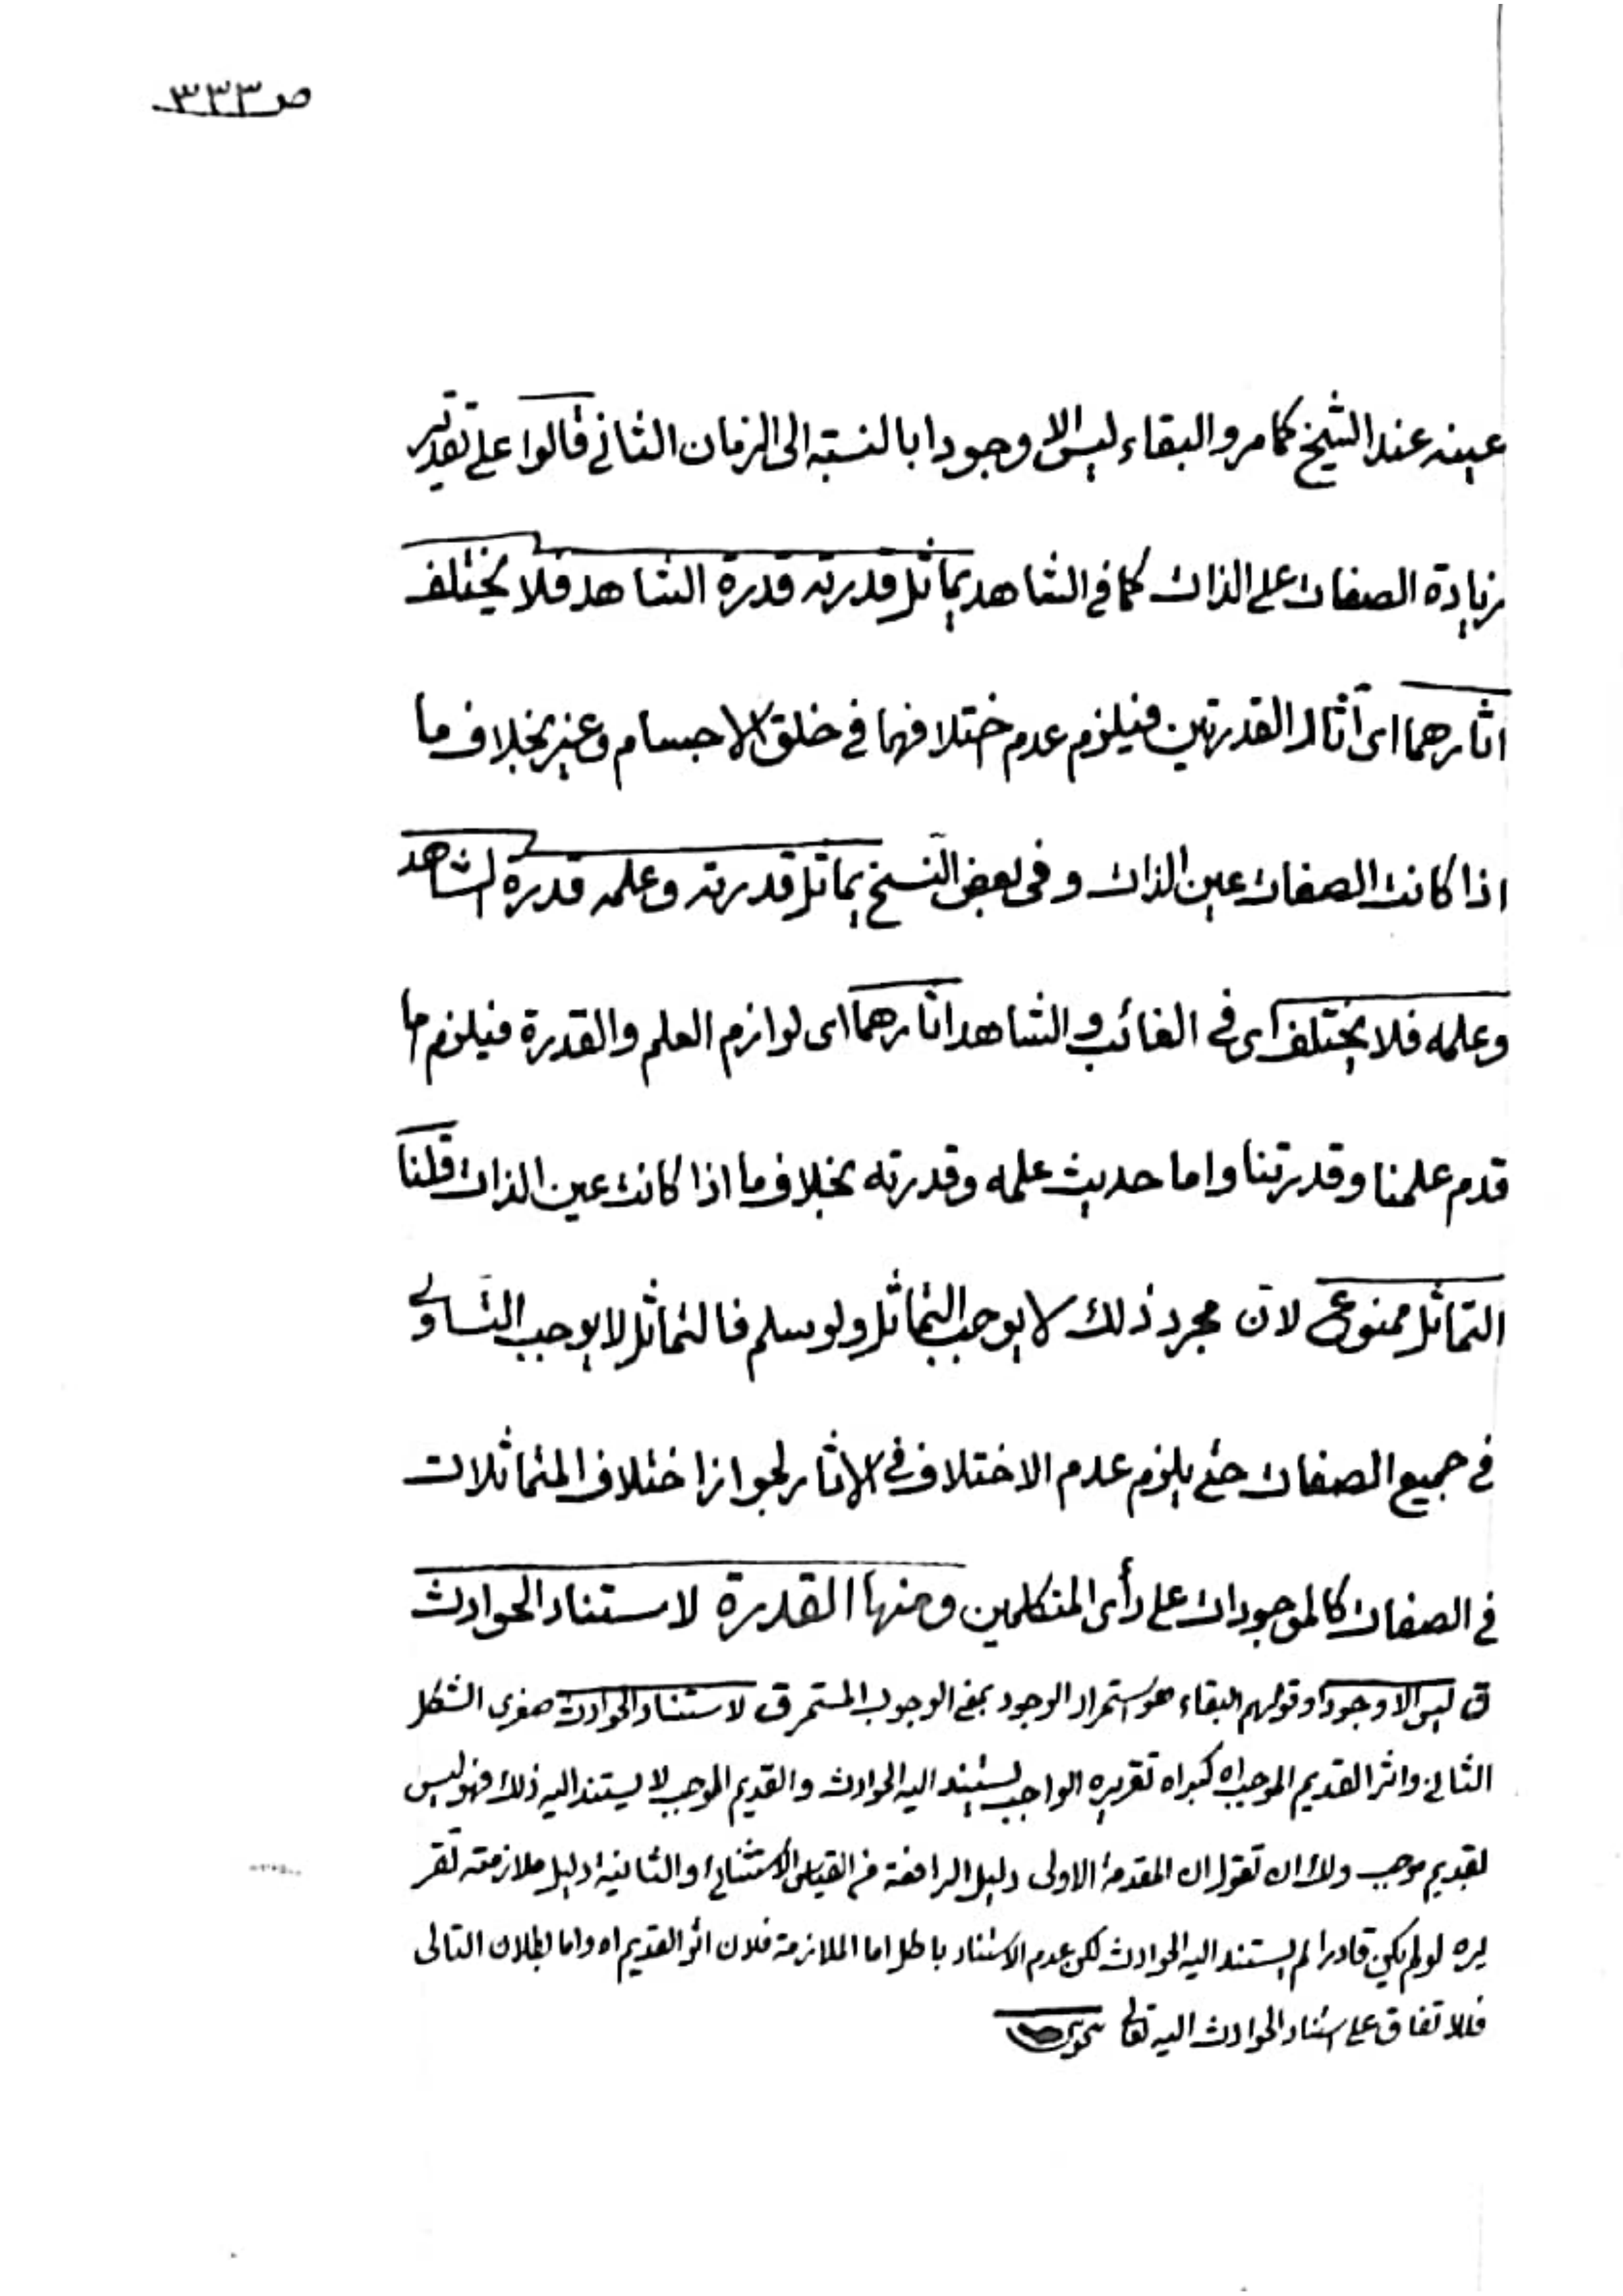 ص ٣٣٣
عينه عند الشيخ كما مر والبقاء ليس الا وجودا بالنسبة الى الزمان الثانى قالوا على تقدير
زيادة الصفات على الذات كما فى الشاهد يماثل قدرته قدرة الشاهد فلا يختلف
اثارهما اى آثار القدرتين فيلزم عدم ختلافهما فى خلق الاجسام وغيره بخلاف ما
اذا كانت الصفات عين الذات وفى بعض النسخ يماثل قدرته وعلمه قدرة الشاهد
وعلمه فلا يختلف اى فى الغائب والشاهد اثارهما اى لوازم العلم والقدرة فيلزم اما
قدم علمنا وقدرتنا واما حديث علمه وقدرته بخلاف ما اذا كانت عين الذات قلنا
التماثل ممنوع لان مجرد ذلك لا يوجب التماثل ولو سلم فالتماثل لا يوجب التساوى
فى جميع الصفات حتى يلزم عدم الاختلاف فى الاثار لجواز اختلاف المتماثلات
فى الصفات كالموجودات على رأى المتكلمين ومنها القدرة لاستناد الحوادث
ق ليس الا وجودا وقولهم البقاء هو استمرار الوجود بمعنى الوجود المستمر ق لاستناد الحوادث صغرى الشكل
الثانى واثر القديم الموجب اه كبراه تقريره الواجب يستند اليه الحوادث والقديم الموجب لا يستند اليه ذلك فهو ليس
بقديم موجب ولك ان تقول ان المقدمة الاولى دليل الرافعة من القياس الاستثنائى والثانية دليل ملازمته تقر
يره لو لم يكن قادرا لم يستند اليه الحوادث لكن عدم الاستناد باطل اما الملازمة فلان اثر القديم اه واما بطلان التالى
فللاتفاق على استناد الحوادث اليه تعالى